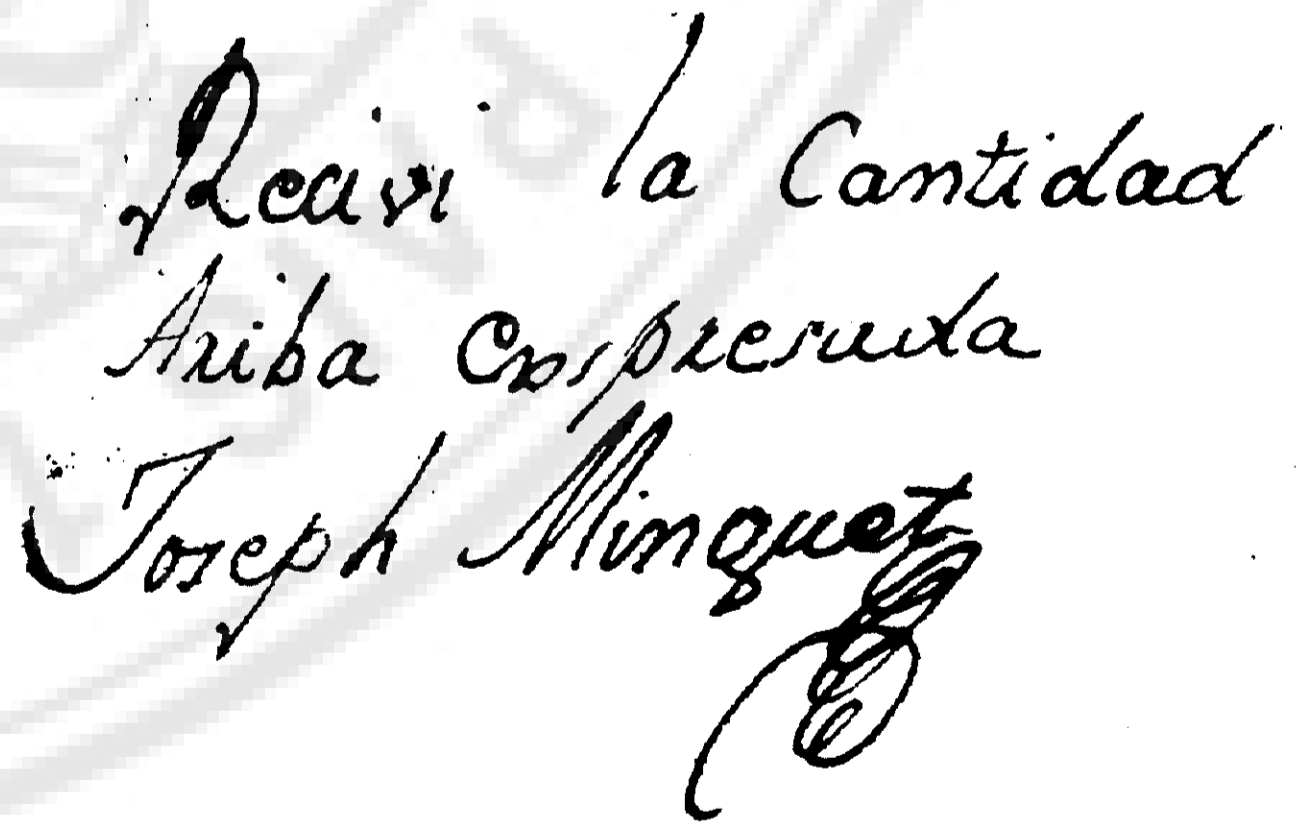 Recivi la Cantidad
Ariba Expresada
Joseph Minguet